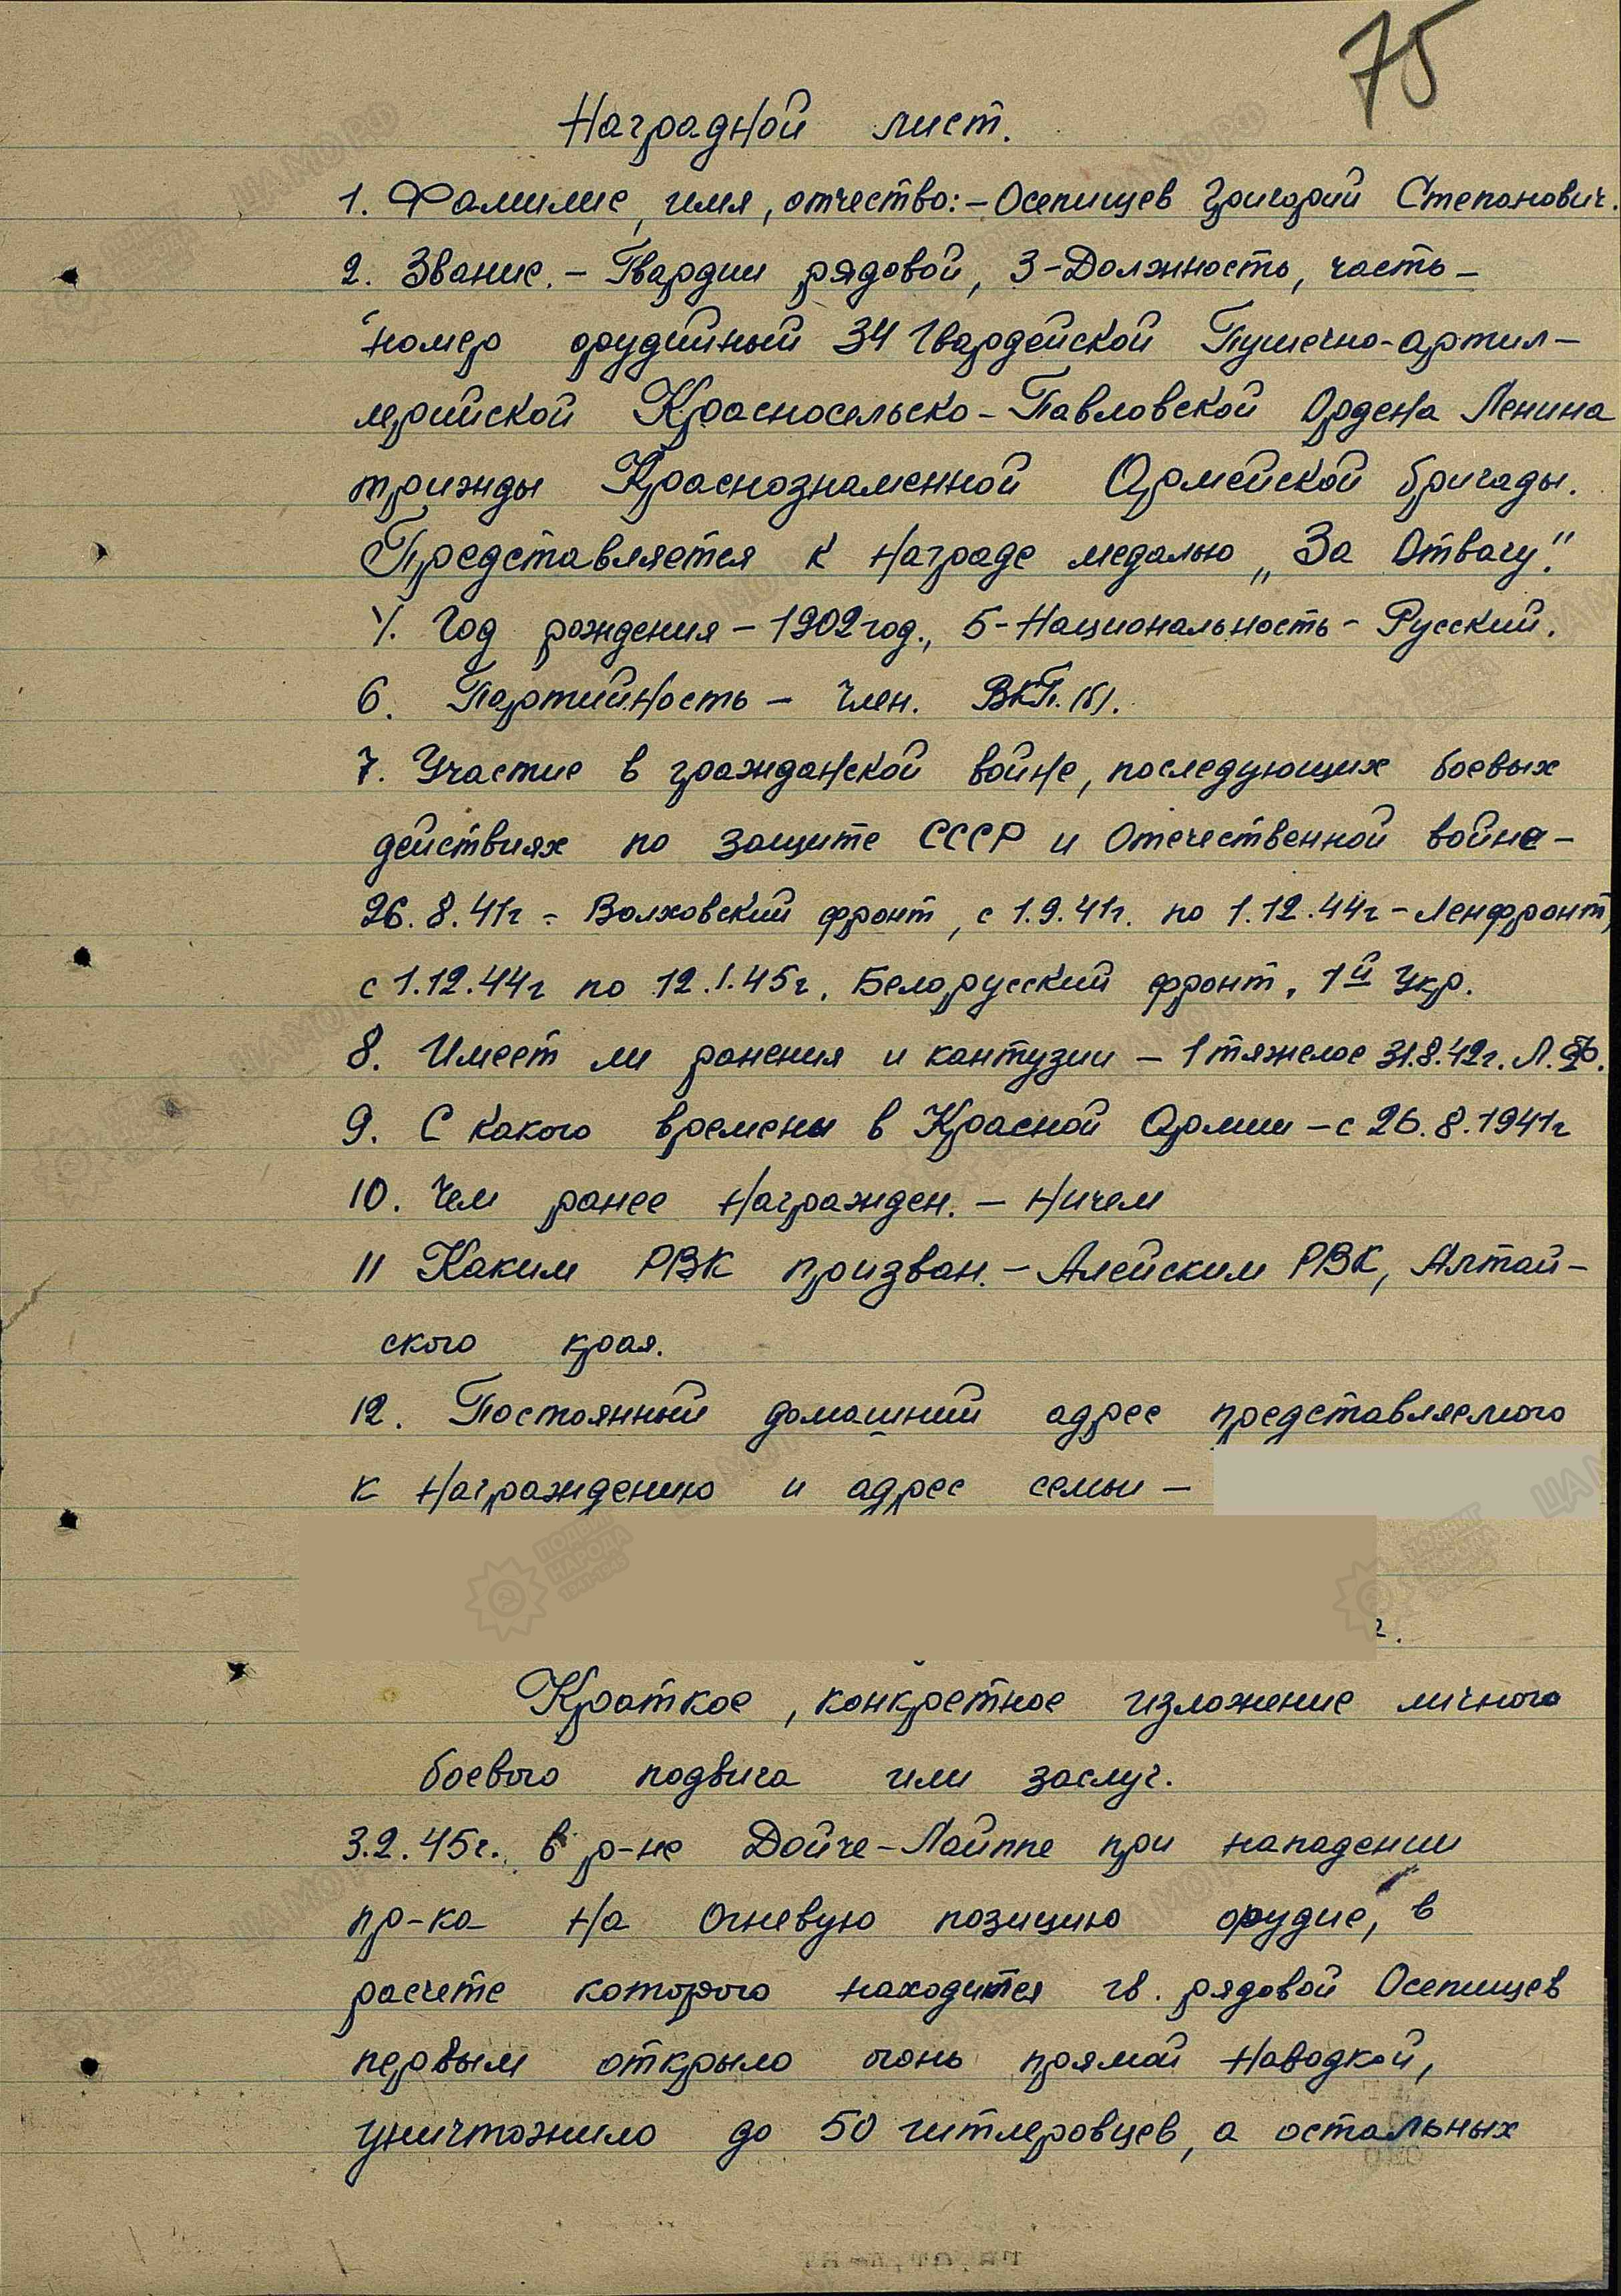 75
Наградной лист.
1. Фамилие, имя, отчество: – Осепищев Григорий Степанович.
2. Звание. – Гвардии рядовой, 3 – Должность, часть –
номер орудийный 34 Гвардейской Пушечно-артил-
лерийской Красносельско – Павловской Ордена Ленина
трижды Краснознаменной Армейской бригады.
Представляется к награде медалью „За Отвагу".
4. Год рождения – 1902 год., 5 – Национальность – Русский.
6. Партийность – Член. ВКП.(б).
7. Участие в гражданской войне, последующих боевых
действиях по защите СССР и Отечественной войне –
26.8.41г - Волховский фронт, с 1.9.41г. по 1.12.44г – Ленфронт,
с 1.12.44г по 12.1.45г. Белорусский фронт, 1й Укр.
8. Имеет ли ранения и контузии – 1 тяжелое 31.8.42г. Л.Ф.
9. С какого времены в Красной Армии – с 26.8.1941г
10. Чем ранее награжден. – Ничем
11 Каким РВК призван. – Алейским РВК, Алтай-
ского края.
12. Постоянный домашний адрес представляемого
к награждению и адрес семьи –
г.
Краткое, конкретное изложение личного
боевого подвига или заслуг.
3.2.45г. в р-не Дойче – Лайппе при нападении
пр-ка на огневую позицию орудие, в
расчете которого находится гв. рядовой Осепищев
первым открыло огонь прямой наводкой,
уничтожило до 50 гитлеровцев, а остальных
ЦАМО РФ
ПОДВИГ
НАРОДА
1941-1945